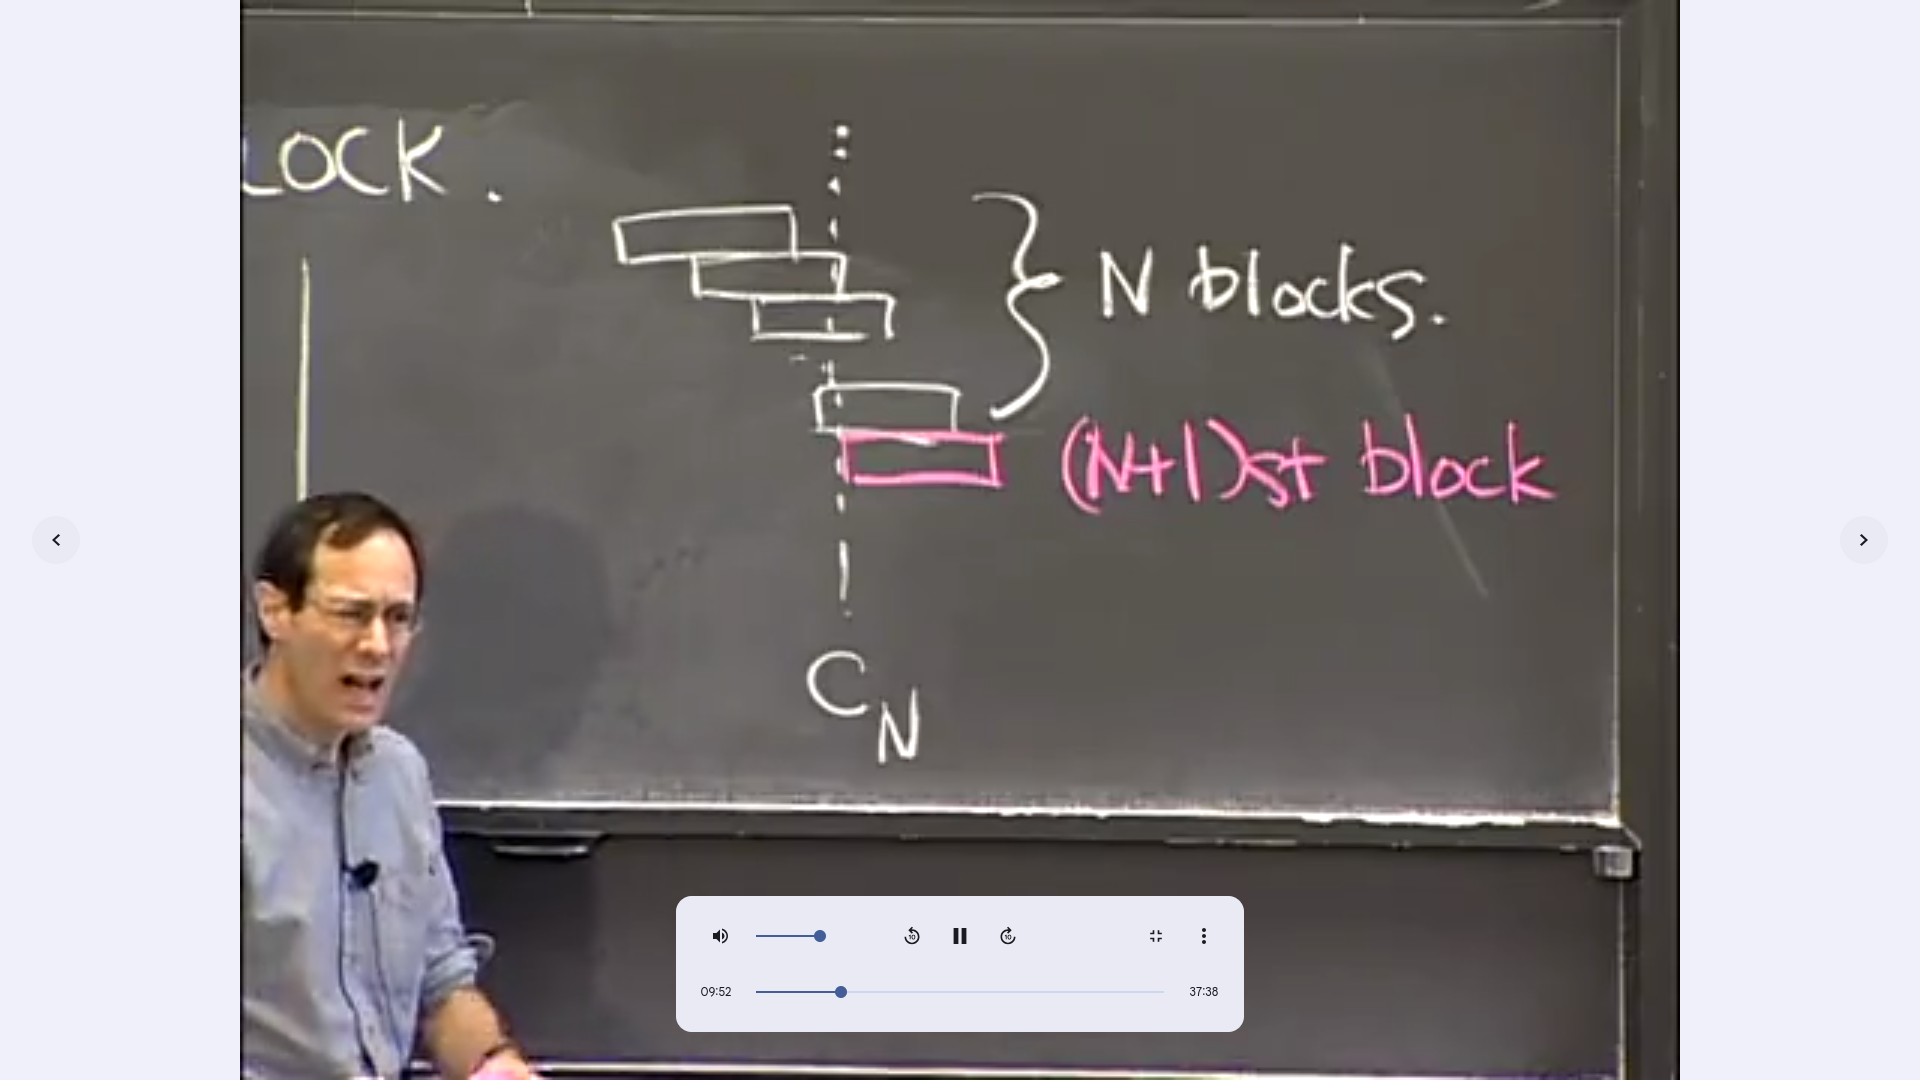 LOCK.
N blocks.
(N+1)st block
C_N
10
10
09:52
37:38